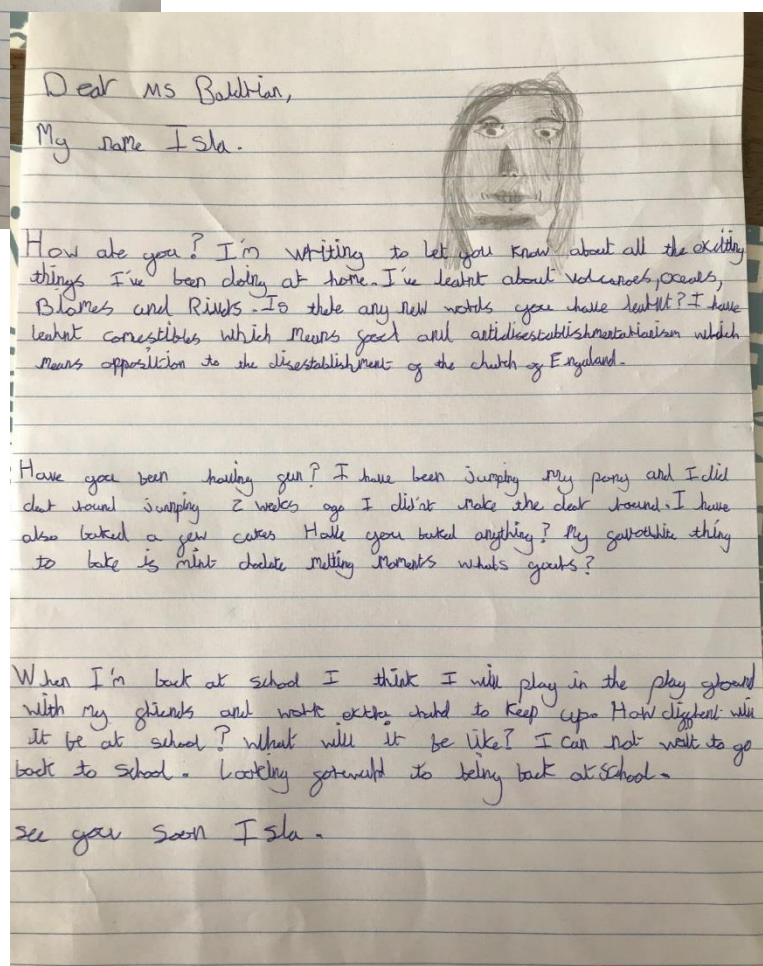 Dear Ms Baldrian,
My name Isla.
How are you? I'm writing to let you know about all the exciting
things I've been doing at home. I've learnt about volcanoes, oceans,
and Rivers. Is there any new words you have learnt? I have
learnt comestibles which means food and antidisestablishmentarianism which
means opposition to the disestablishment of the church of Engaland.
Have you been having fun? I have been jumping my pony and I did
clear round jumping 2 weeks ago I did'nt make the clear round. I have
also baked a few cakes Have you baked anything? My thing
to bake is mint melting moments whats yours?
When I'm back at school I think I will play in the play ground
with my friends and work extra hard to keep up. How will
it be at school? What will it be like? I can not wait to go
back to school. Looking to being back at school.
see you soon Isla.